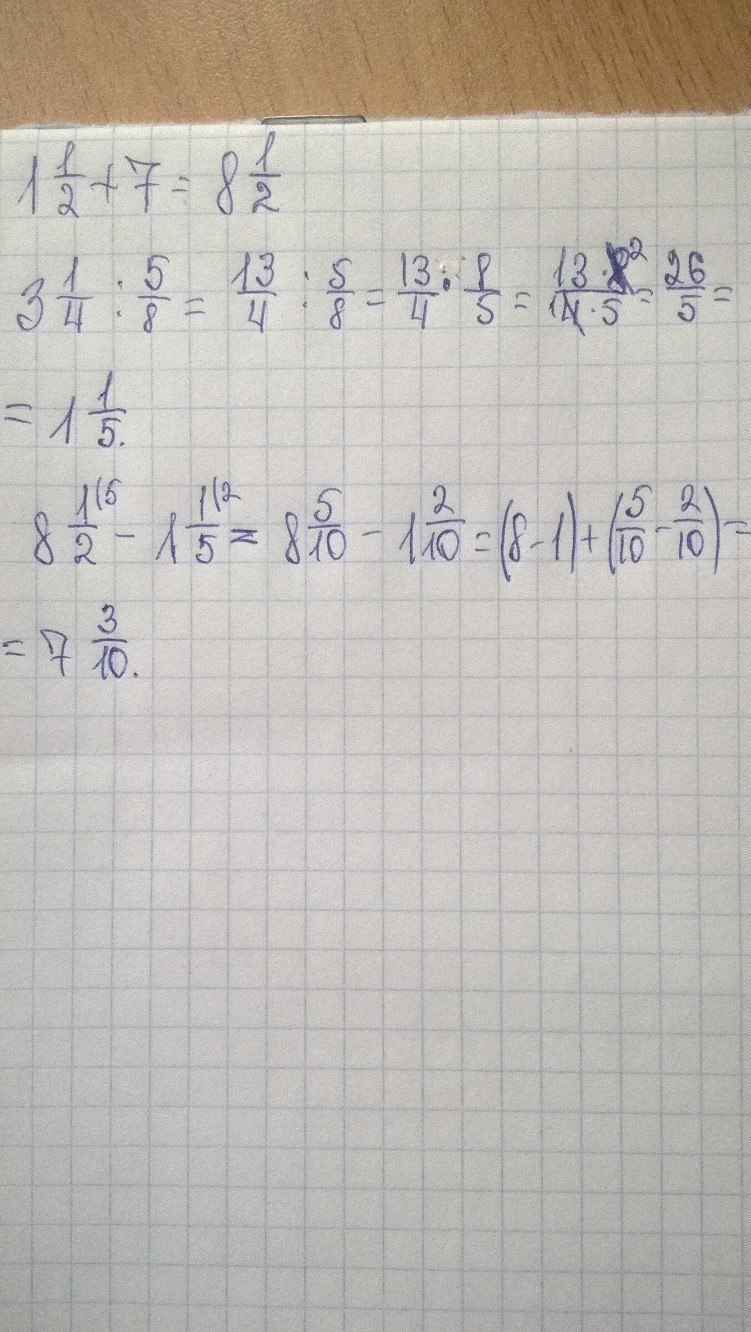 1 1/2 + 7 = 8 1/2
3 1/4 : 5/8 = 13/4 : 5/8 = 13/4 · 8/5 = 13·8²/14·5 = 26/5 =
= 1 1/5.
8 1(5/2 - 1 1(2/5 = 8 5/10 - 1 2/10 = (8-1)+(5/10 - 2/10) =
= 7 3/10.